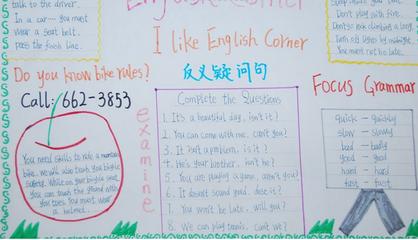 English Corner
talk to the driver.
In a car — you must
wear a seat belt.
pass the finish line.
I like English Corner
Don't play with fire.
Turn off lights by midnight.
You must not late.
Do you know bike rules?
Call: 662-3853
反义疑问句
Focus Grammar
You need skills to ride a mountain
bike. We will also teach you bicycle
safety. While on your bicycle seat,
you can touch the ground with
you toes. You must wear
a helmet.
examine
Complete the Questions
1. It's a beautiful day, isn't it?
2. You can come with me, can't you?
3. It isn't a problem, is it?
4. He's your brother, isn't he?
5. You are playing a game, aren't you?
6. It doesn't sound good, does it?
7. You won't be late, will you?
8. We can play tennis, Can't we?
quick — quickly
slow — slowly
bad — badly
good — good
hard — hard
fast — fast